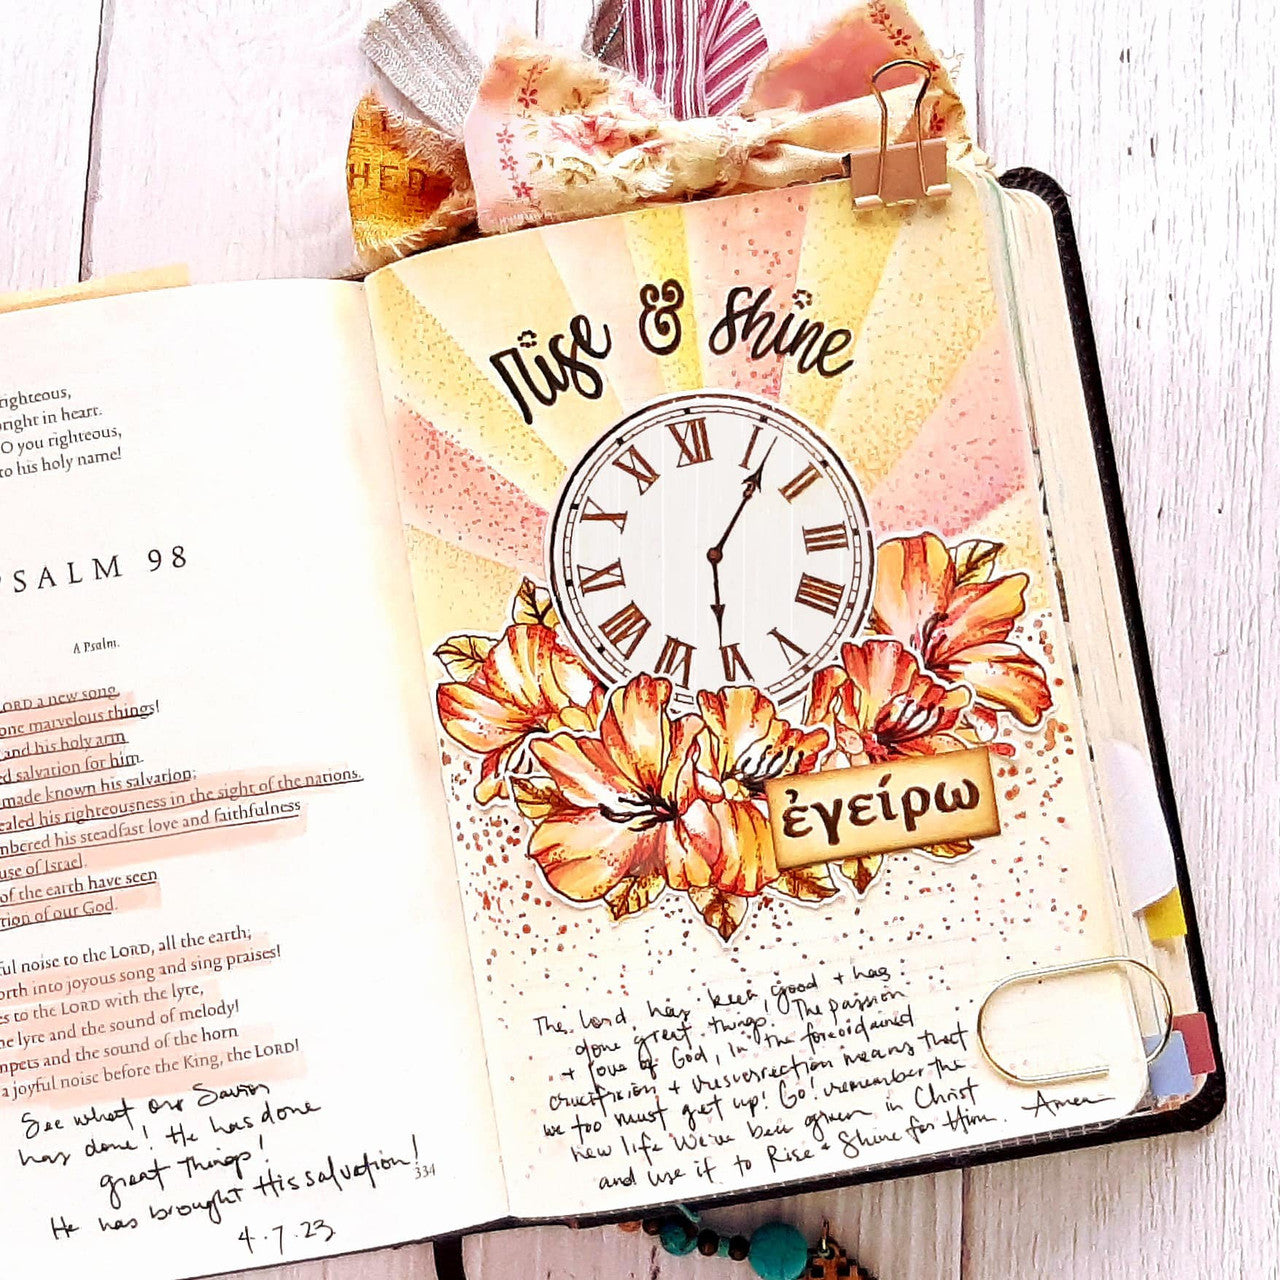 HER
righteous,
right in heart.
O you righteous,
to his holy name!
PSALM 98
A Psalm.
LORD a new song
one marvelous things!
and his holy arm
ed salvation for him.
made known his salvation;
ealed his righteousness in the sight of the nations.
mbered his steadfast love and faithfulness
use of Israel.
of the earth have seen
tion of our God.
ful noise to the LORD, all the earth;
orth into joyous song and sing praises!
es to the LORD with the lyre,
he lyre and the sound of melody!
mpets and the sound of the horn
a joyful noise before the King, the LORD!
See what our Savior
has done! He has done
great things!
He has brought His salvation!
334
4.7.23
Rise & Shine
XII I II III IIII V VI VII VIII IX X XI
ἐγείρω
The Lord has been good + has
done great things. The passion
+ love of God, in the foreordained
crucifixion + resurrection means that
we too must get up! Go! remember the
new life We've been given in Christ
and use it to Rise & Shine for Him. Amen